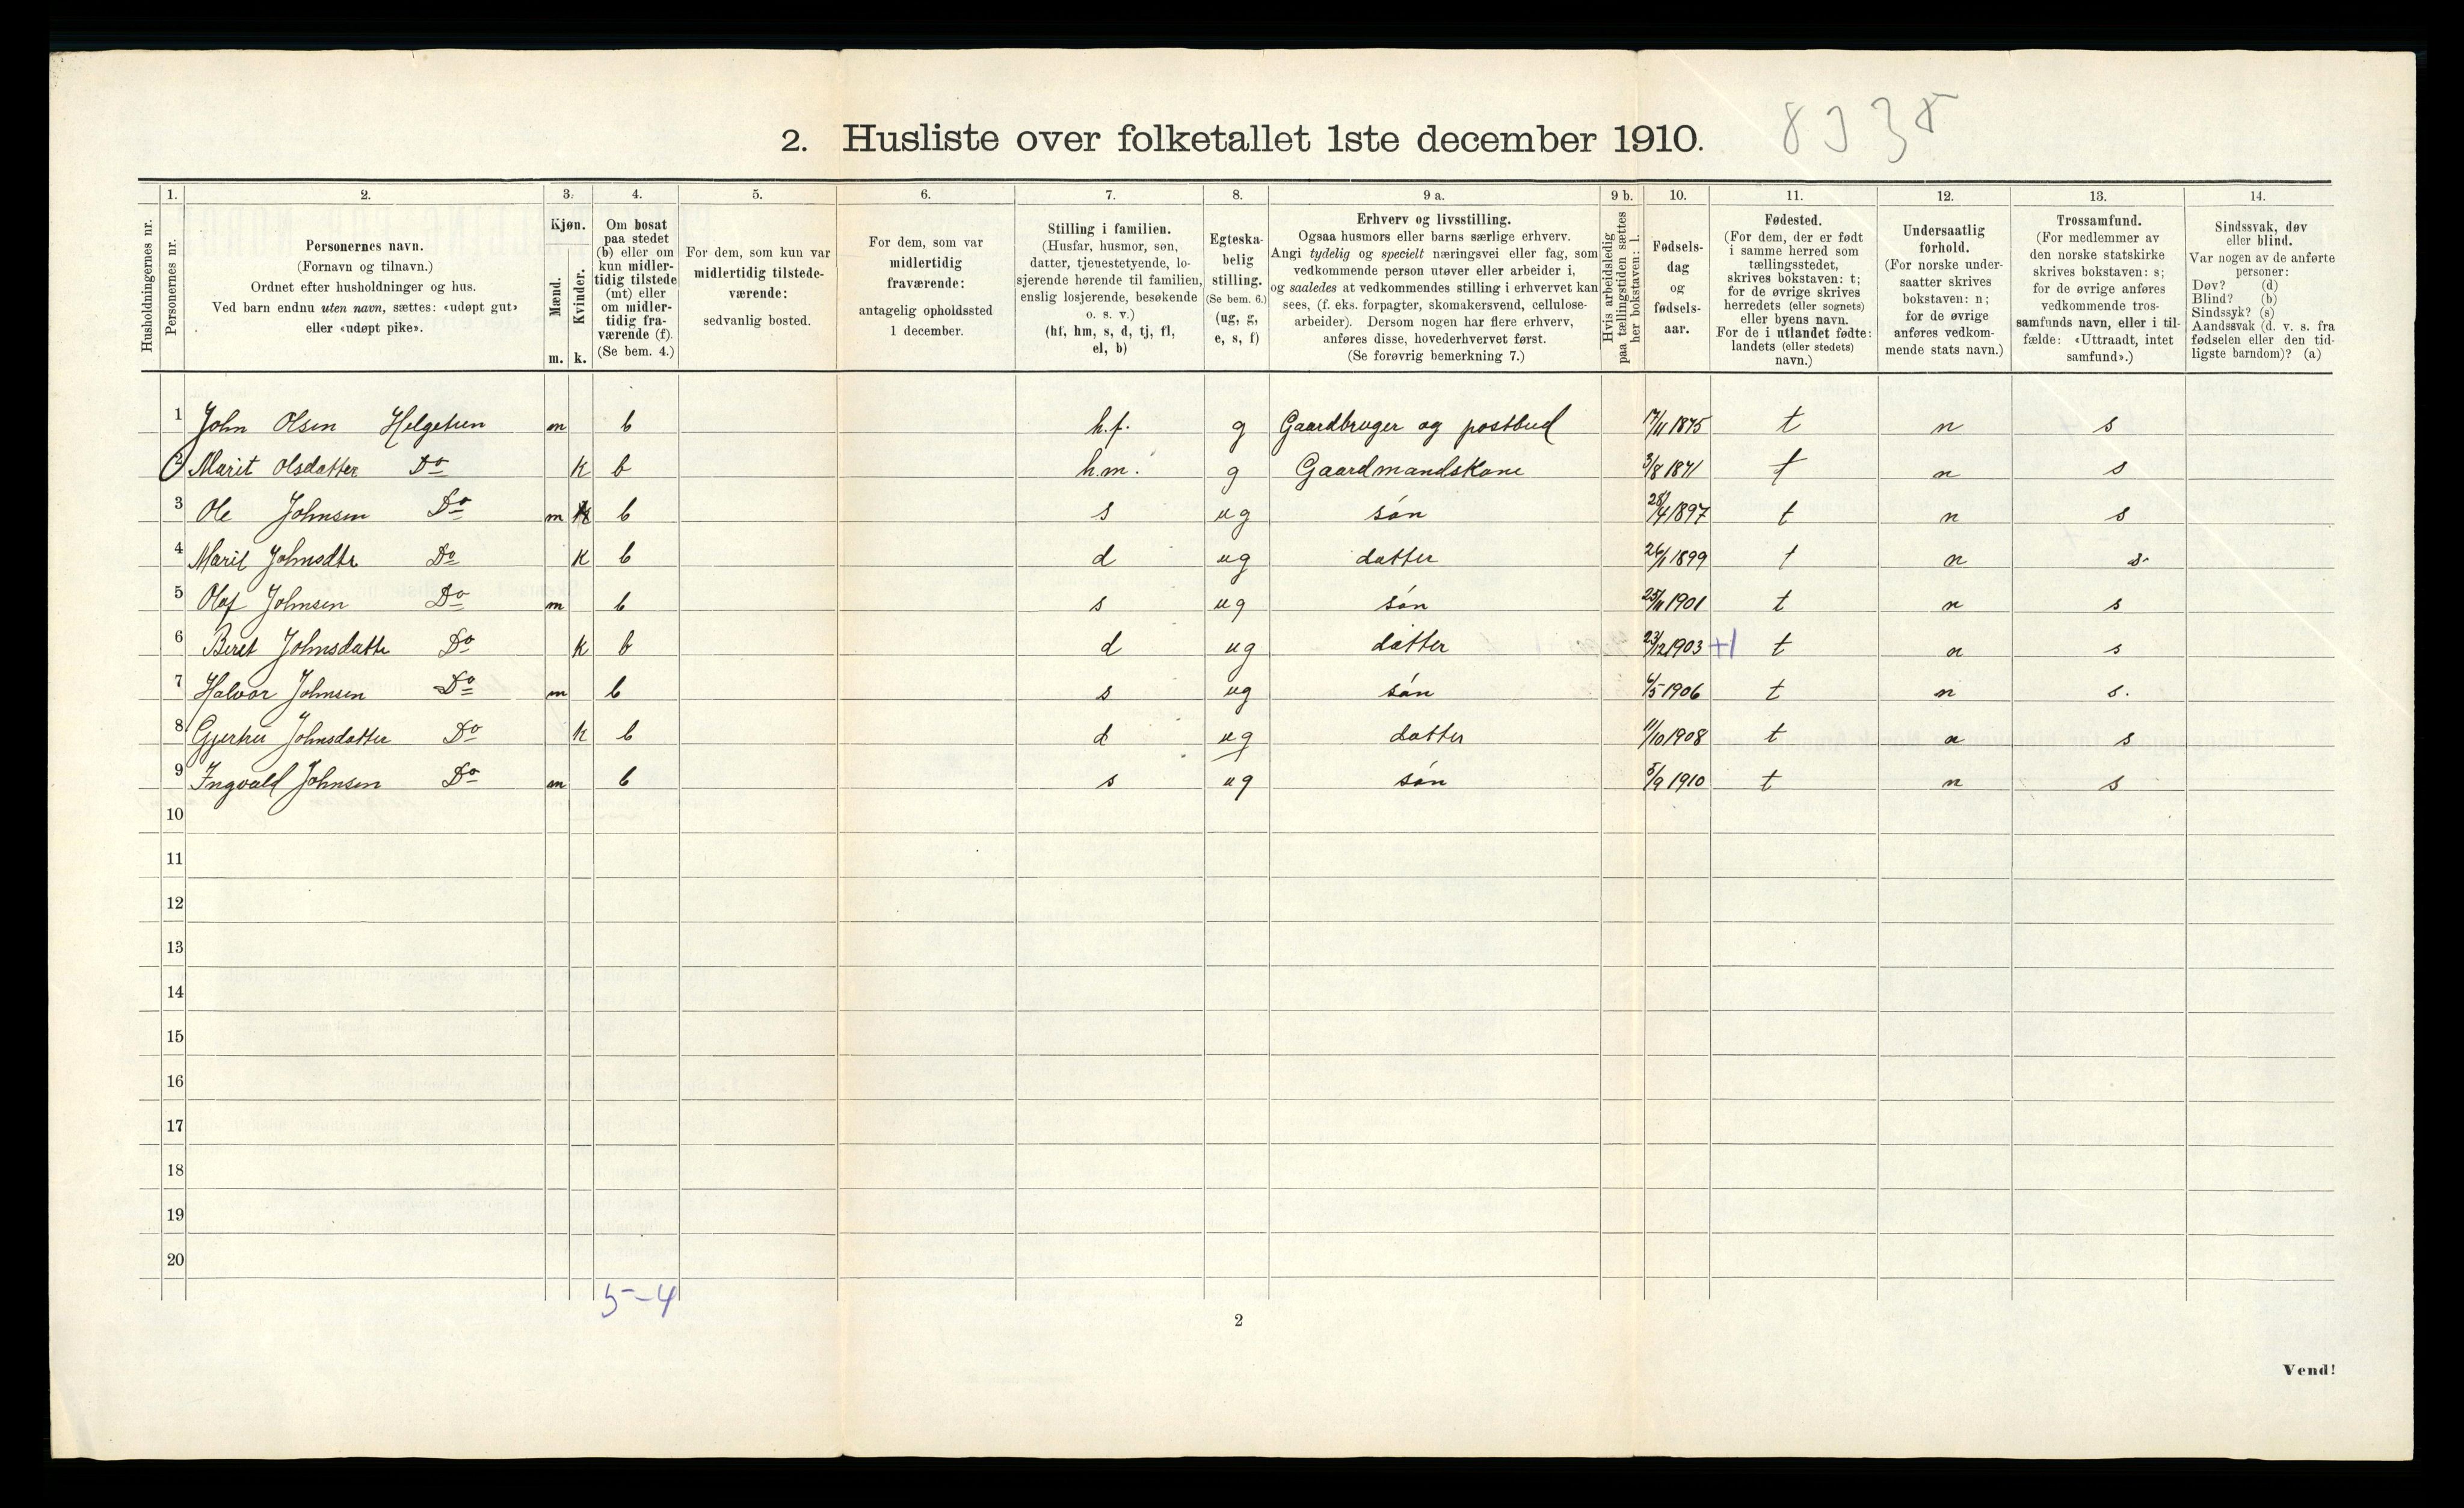 2. Husliste over folketallet 1ste december 1910.
8335
Husholdningernes nr.
1.
Personernes nr.
2.
Personernes navn.
(Fornavn og tilnavn.)
Ordnet efter husholdninger og hus.
Ved barn endnu uten navn, sættes: «udøpt gut»
eller «udøpt pike».
3.
Kjøn.
Mænd.
m.
Kvinder.
k.
4.
Om bosat
paa stedet
(b) eller om
kun midler-
tidig tilstede
(mt) eller
om midler-
tidig fra-
værende (f).
(Se bem. 4.)
5.
For dem, som kun var
midlertidig tilstede-
værende:
sedvanlig bosted.
6.
For dem, som var
midlertidig
fraværende:
antagelig opholdssted
1 december.
7.
Stilling i familien.
(Husfar, husmor, søn,
datter, tjenestetyende, lo-
sjerende hørende til familien,
enslig losjerende, besøkende
o. s. v.)
(hf, hm, s, d, tj, fl,
el, b)
8.
Egteska-
belig
stilling.
(Se bem. 6.)
(ug, g,
e, s, f)
9 a.
Erhverv og livsstilling.
Ogsaa husmors eller barns særlige erhverv.
Angi tydelig og specielt næringsvei eller fag, som
vedkommende person utøver eller arbeider i,
og saaledes at vedkommendes stilling i erhvervet kan
sees, (f. eks. forpagter, skomakersvend, cellulose-
arbeider). Dersom nogen har flere erhverv,
anføres disse, hovederhvervet først.
(Se forøvrig bemerkning 7.)
9 b.
Hvis arbeidsledig
paa tællingstiden sættes
her bokstaven: l.
10.
Fødsels-
dag
og
fødsels-
aar.
11.
Fødested.
(For dem, der er født
i samme herred som
tællingsstedet,
skrives bokstaven: t;
for de øvrige skrives
herredets (eller sognets)
eller byens navn.
For de i utlandet fødte:
landets (eller stedets)
navn.)
12.
Undersaatlig
forhold.
(For norske under-
saatter skrives
bokstaven: n;
for de øvrige
anføres vedkom-
mende stats navn.)
13.
Trossamfund.
(For medlemmer av
den norske statskirke
skrives bokstaven: s;
for de øvrige anføres
vedkommende tros-
samfunds navn, eller i til-
fælde: «Uttraadt, intet
samfund».)
14.
Sindssvak, døv
eller blind.
Var nogen av de anførte
personer:
Døv? (d)
Blind? (b)
Sindssyk? (s)
Aandssvak (d. v. s. fra
fødselen eller den tid-
ligste barndom)? (a)
1 John Olsen Helgetun m b h.f. g Gaardbruger og postbud 17/11 1875 t n s
2 Marit Olsdatter Do k b h.m. g Gaardmandskone 3/8 1871 t n s
3 Ole Johnsen Do m b s ug søn 28/4 1897 t n s
4 Marit Johnsdtr Do k b d ug datter 26/1 1899 t n s.
5 Olaf Johnsen Do m b s ug søn 25/11 1901 t n s
6 Beret Johnsdatter Do k b d ug datter 23/12 1903 +1 t n s
7 Halvor Johnsen Do m b s ug søn 6/5 1906 t n s.
8 Gjertru Johnsdatter Do k b d ug datter 11/10 1908 t n s
9 Ingvald Johnsen Do m b s ug søn 5/9 1910 t n s
10
11
12
13
14
15
16
17
18
19
20
5-4
2
Vend!